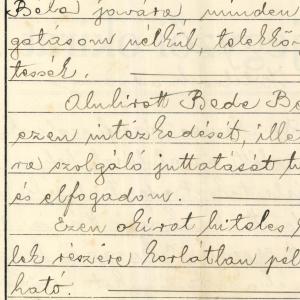 Bela javára, minden
gatásom nélkül, telekkön
tessék.
Alulirott Bede Be
ezen intézkedését, ille
re szolgáló juttatását h
és elfogadom.
Ezen okirat hiteles
lek részére korlátlan pél
ható.